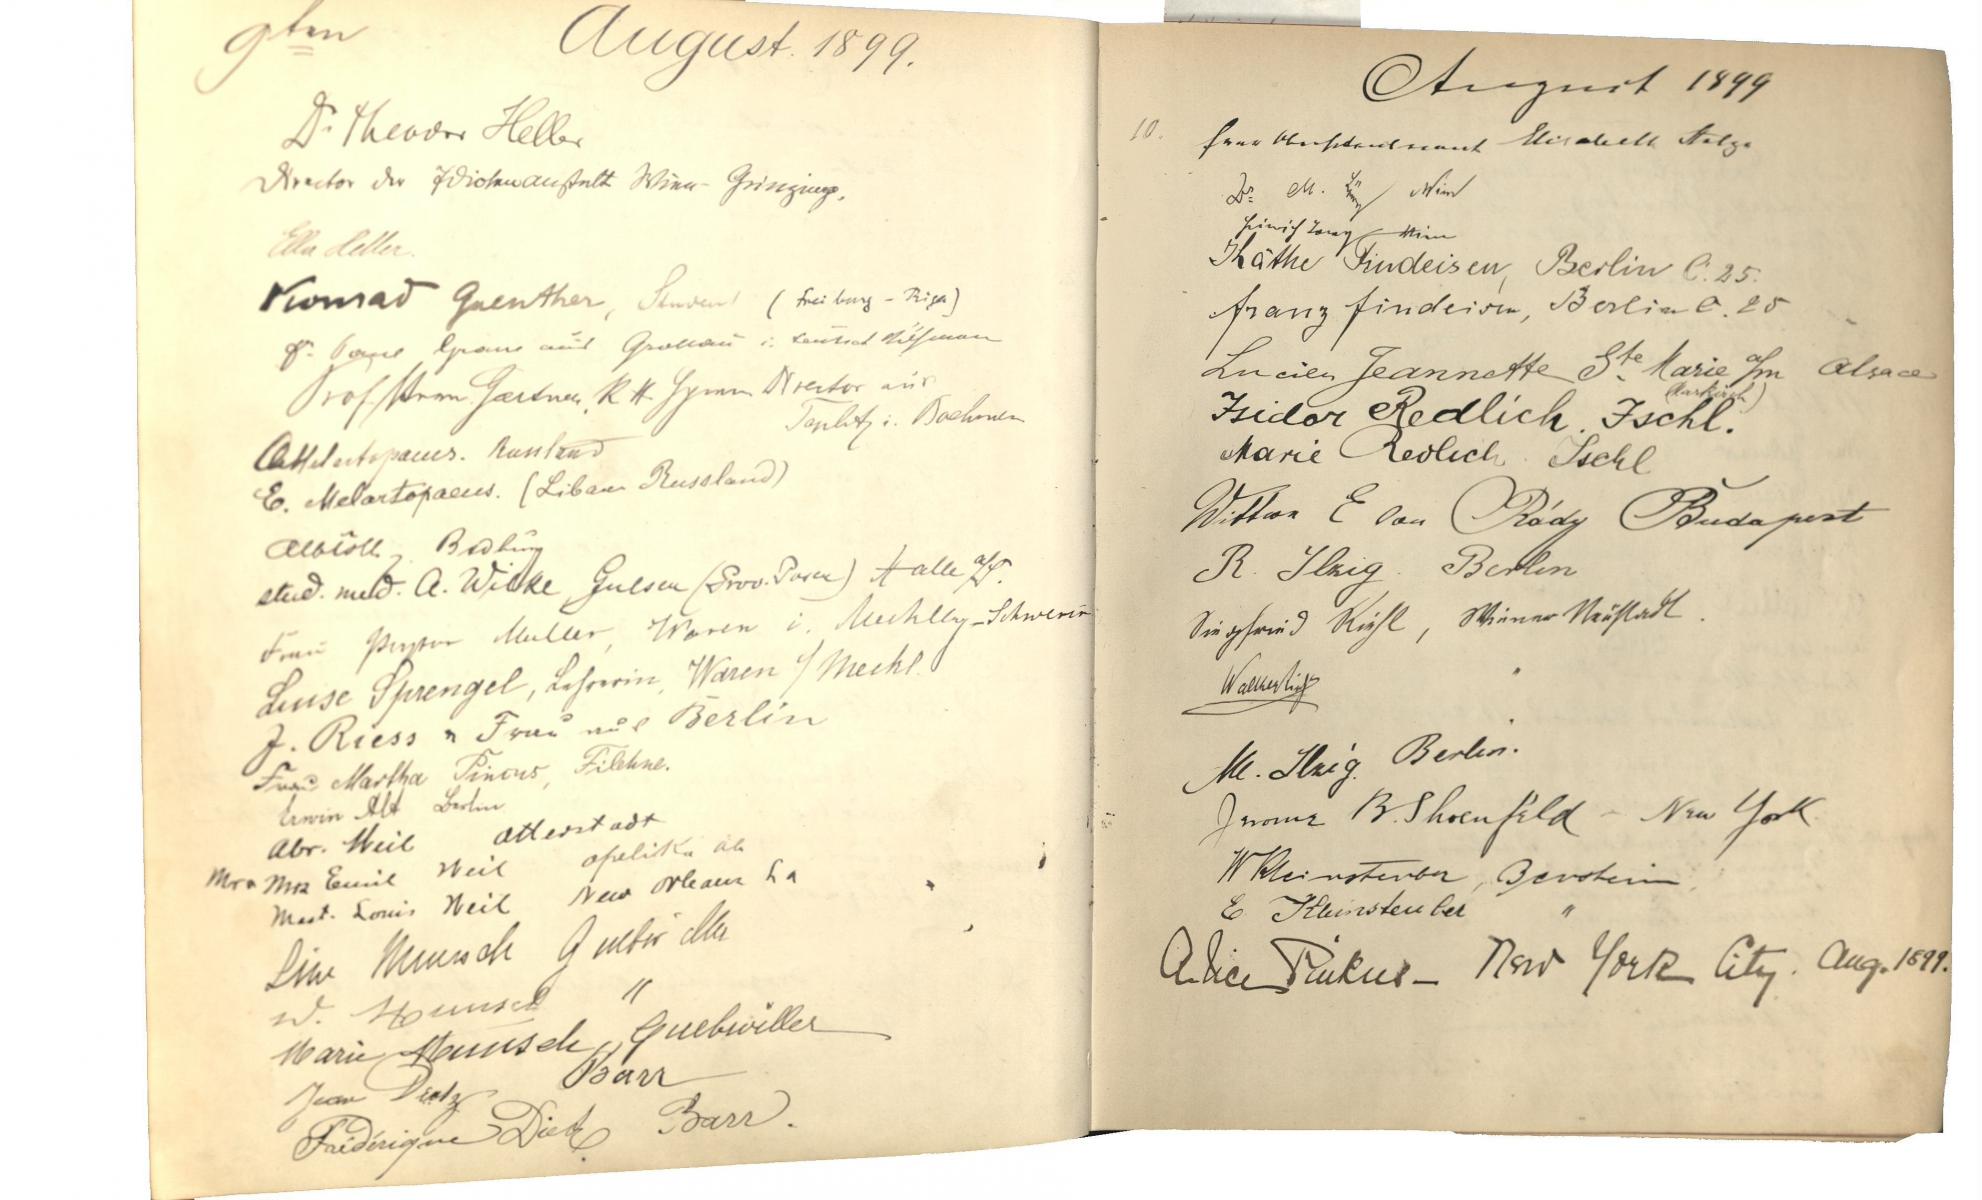 9ten August. 1899.
Dr. Theodor Heller
Director der Idiotenanstalt Wien - Grinzing.
Ella Heller.
Konrad Guenther, Student (Freiburg - Riga)
aus i. Deutsch Böhmen
Prof. Gaertner, K K Gymn Director aus
Teplitz i. Boehmen
Melartopaeus. Russland
E. Melartopaeus. (Libau Russland)
stud. med. A. Wilke, Gulsen (Prov. Posen) Halle a/S.
Frau Pastor Muller, Waren i. Mecklbg-Schwerin
Luise Sprengel, Lehrerin, Waren i/Meckl.
J. Riess u Frau aus Berlin
Frau Martha Pincus, Filehne.
Erwin Alt Berlin
Abr. Weil Otterstadt
Mrs Emil Weil Opelika Ala
Mast. Louis Weil New Orleans La
Line Munsch Guebwiller
W. Munsch "
Marie Munsch, Guebwiller
Jean Dietz Barr
Frédérique Dietz Barr.
August 1899
10. Frau Elisabeth
Dr. M. Wien
Heinrich Wien
Käthe Findeisen, Berlin C. 25.
Franz Findeisen, Berlin C. 25
Lucien Jeannette Ste. Marie a/m Alsace
(Markirch)
Isidor Redlich. Ischl.
Marie Redlich Ischl
Wittwe E von Rády Budapest
R. Ilzig. Berlin
Siegfried Riehl, Wiener Neustadt.
"
M. Ilzig. Berlin.
Jerome B. Shoenfeld - New York
W Kleinsteuber,
E Kleinsteuber "
Alice Pinkus - New York City. Aug. 1899.